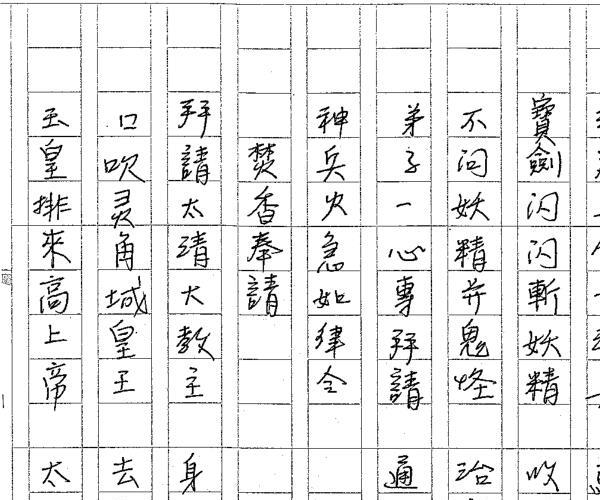 寶劍閃閃斬妖精 收
不问妖精并鬼怪 治
弟子一心專拜請 通
神兵火急如律令
焚香奉請
拜請太清大教主 身
口吹灵角城皇王 去
玉皇排來高上帝 太